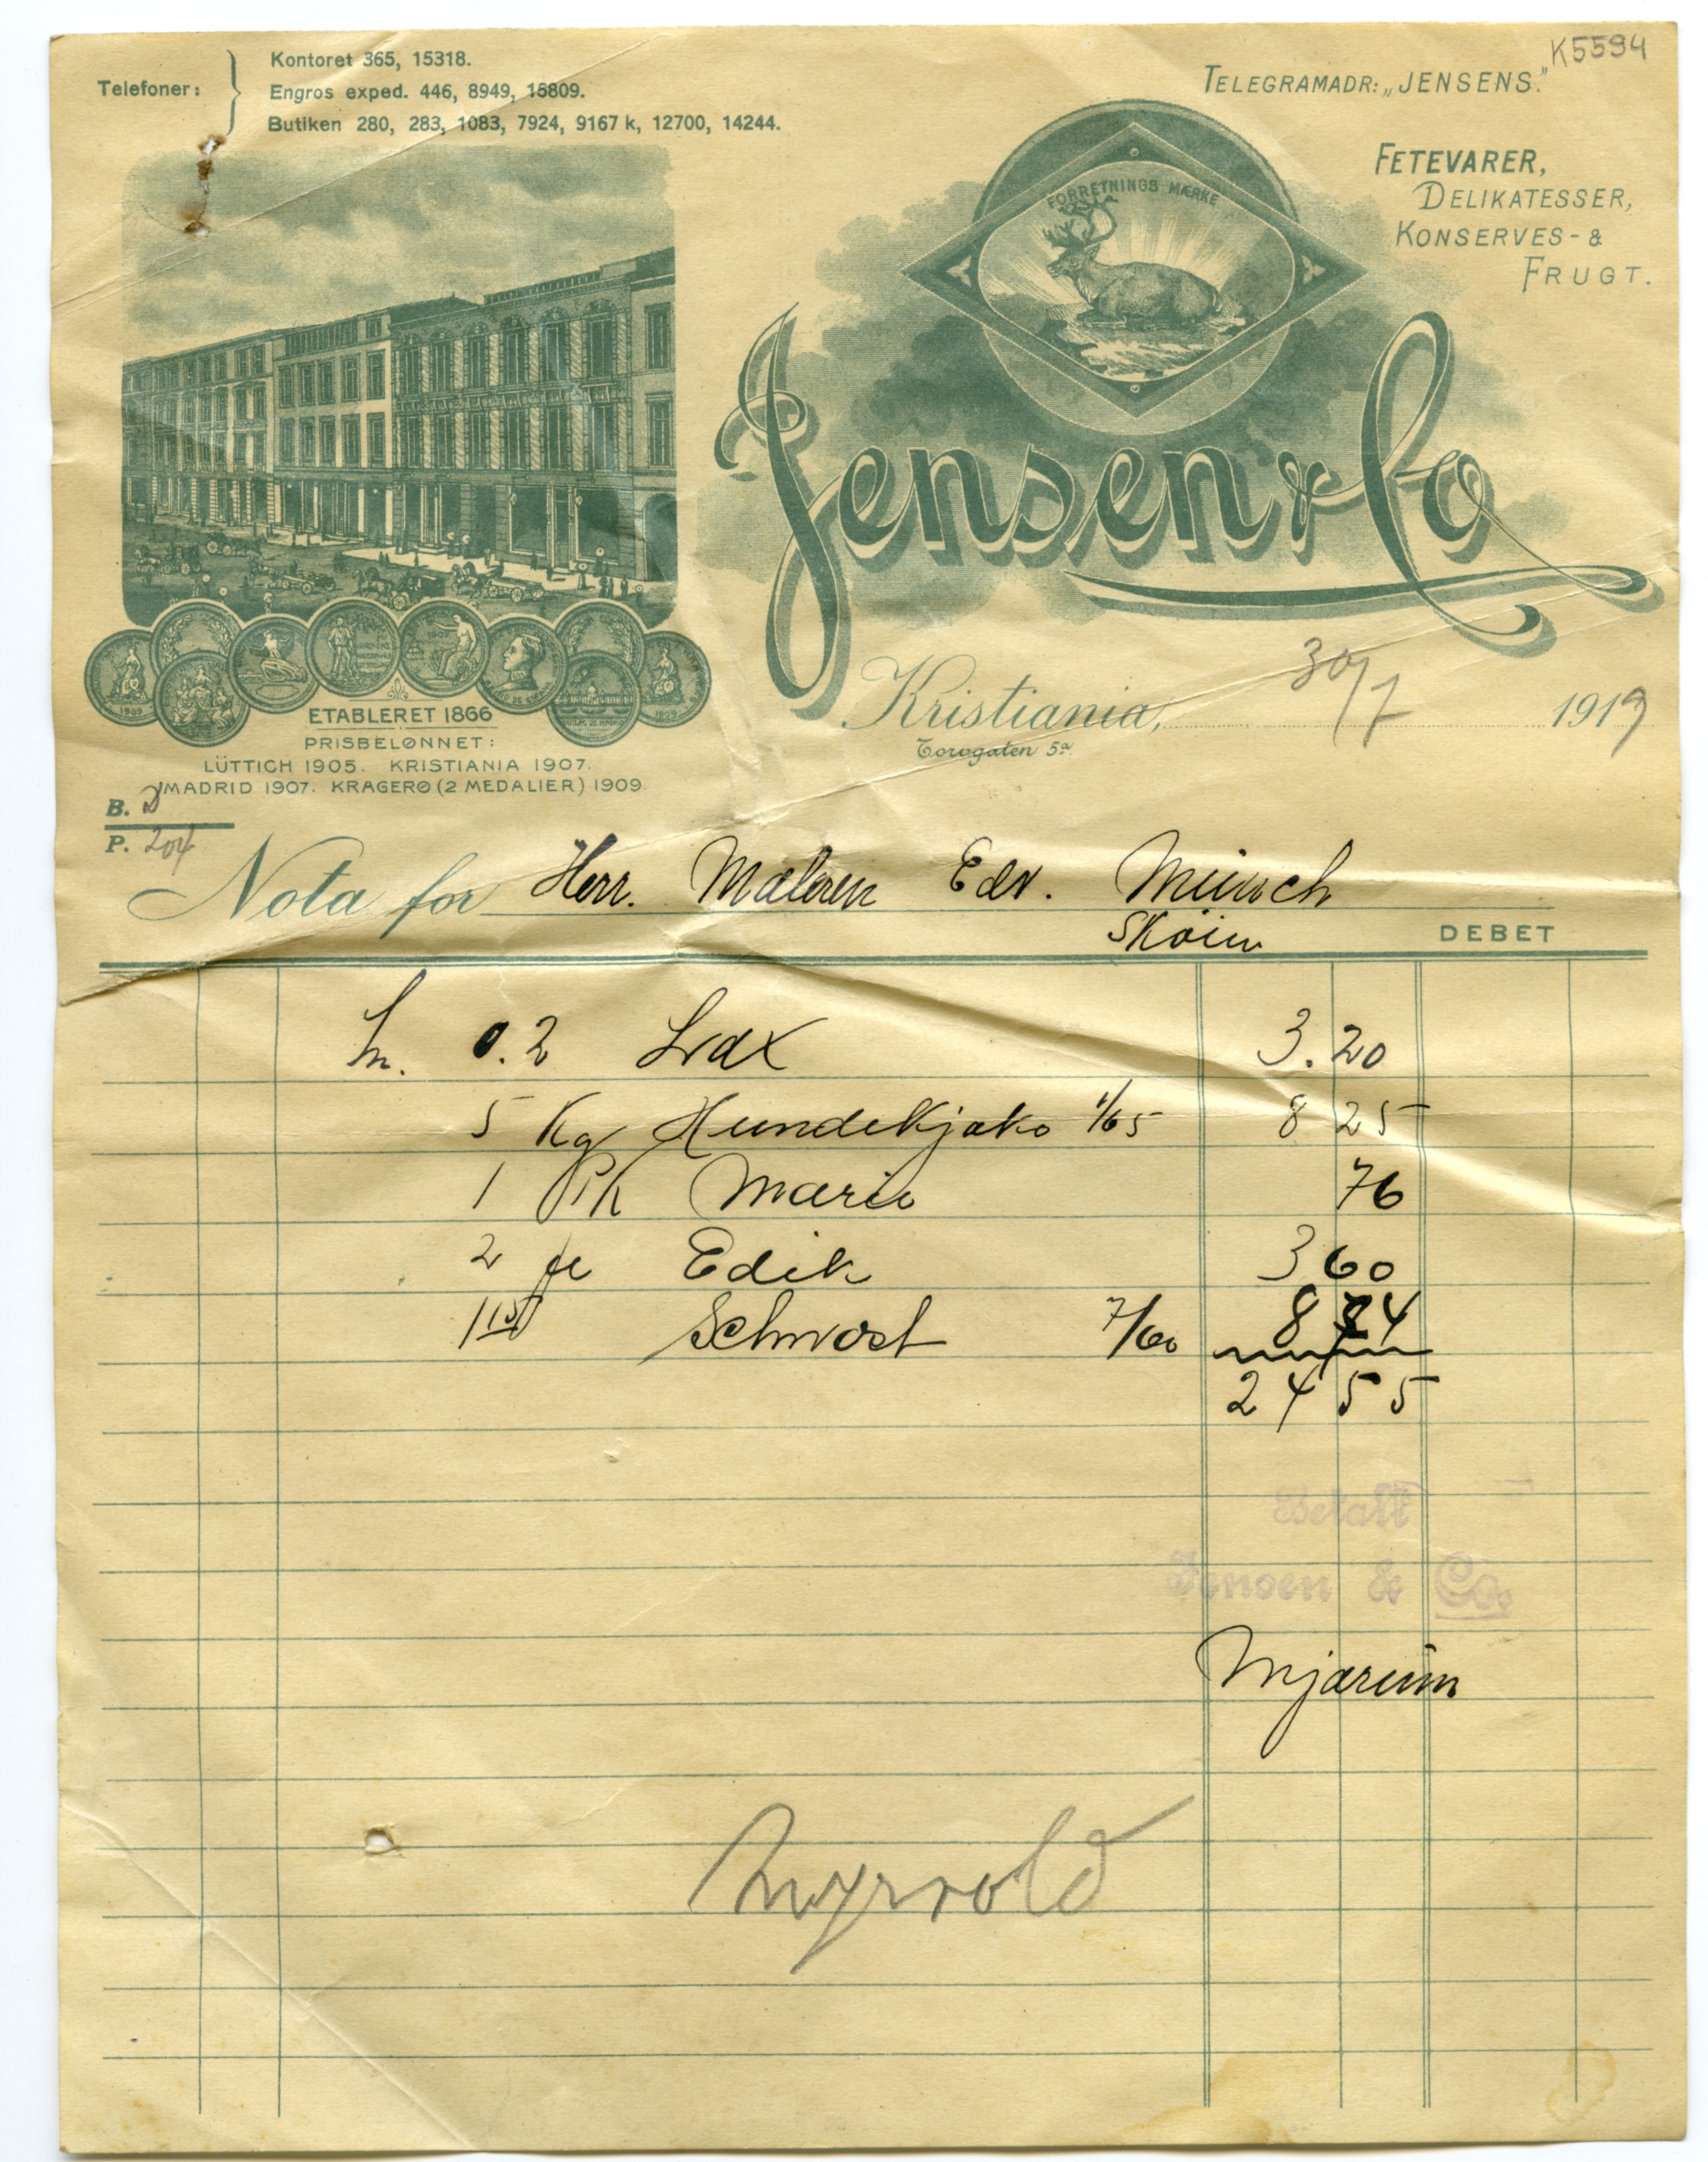 K5594
Telefoner:
Kontoret 365, 15318.
Engros exped. 446, 8949, 15809.
Butiken 280, 283, 1083, 7924, 9167 k, 12700, 14244.
TELEGRAMADR: „JENSENS."
FETEVARER,
DELIKATESSER,
KONSERVES- &
FRUGT.
FORRETNINGS MÆRKE
Jensen & Co
ETABLERET 1866
PRISBELØNNET:
LÜTTICH 1905. KRISTIANIA 1907.
MADRID 1907. KRAGERØ (2 MEDALIER) 1909.
Kristiania, 30/7 1919
Torvgaten 5a
B.
P. 204
Nota for Herr. Maleren Edv. Münch
Skøien
DEBET
0.2 Lax 3.20
5 Kg Hundekjæks 1/65 8 25
1 Pk Marie 76
2 fl Edik 3 60
1 15 Schvost 7/60 8 74
24 55
Betalt
Jensen & Co.
Myrvold